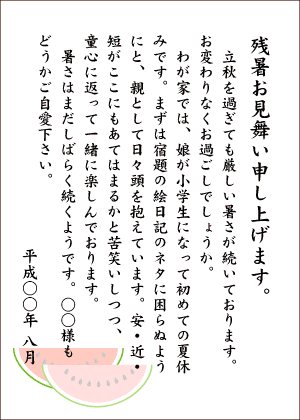 残暑お見舞い申し上げます。
立秋を過ぎても厳しい暑さが続いております。
お変わりなくお過ごしでしょうか。
わが家では、娘が小学生になって初めての夏休
みです。まずは宿題の絵日記のネタに困らぬよう
にと、親として日々頭を抱えています。安・近・
短がここにもあてはまるかと苦笑いしつつ、
童心に返って一緒に楽しんでおります。
暑さはまだしばらく続くようです。〇〇様も
どうかご自愛下さい。
平成〇〇年 八月